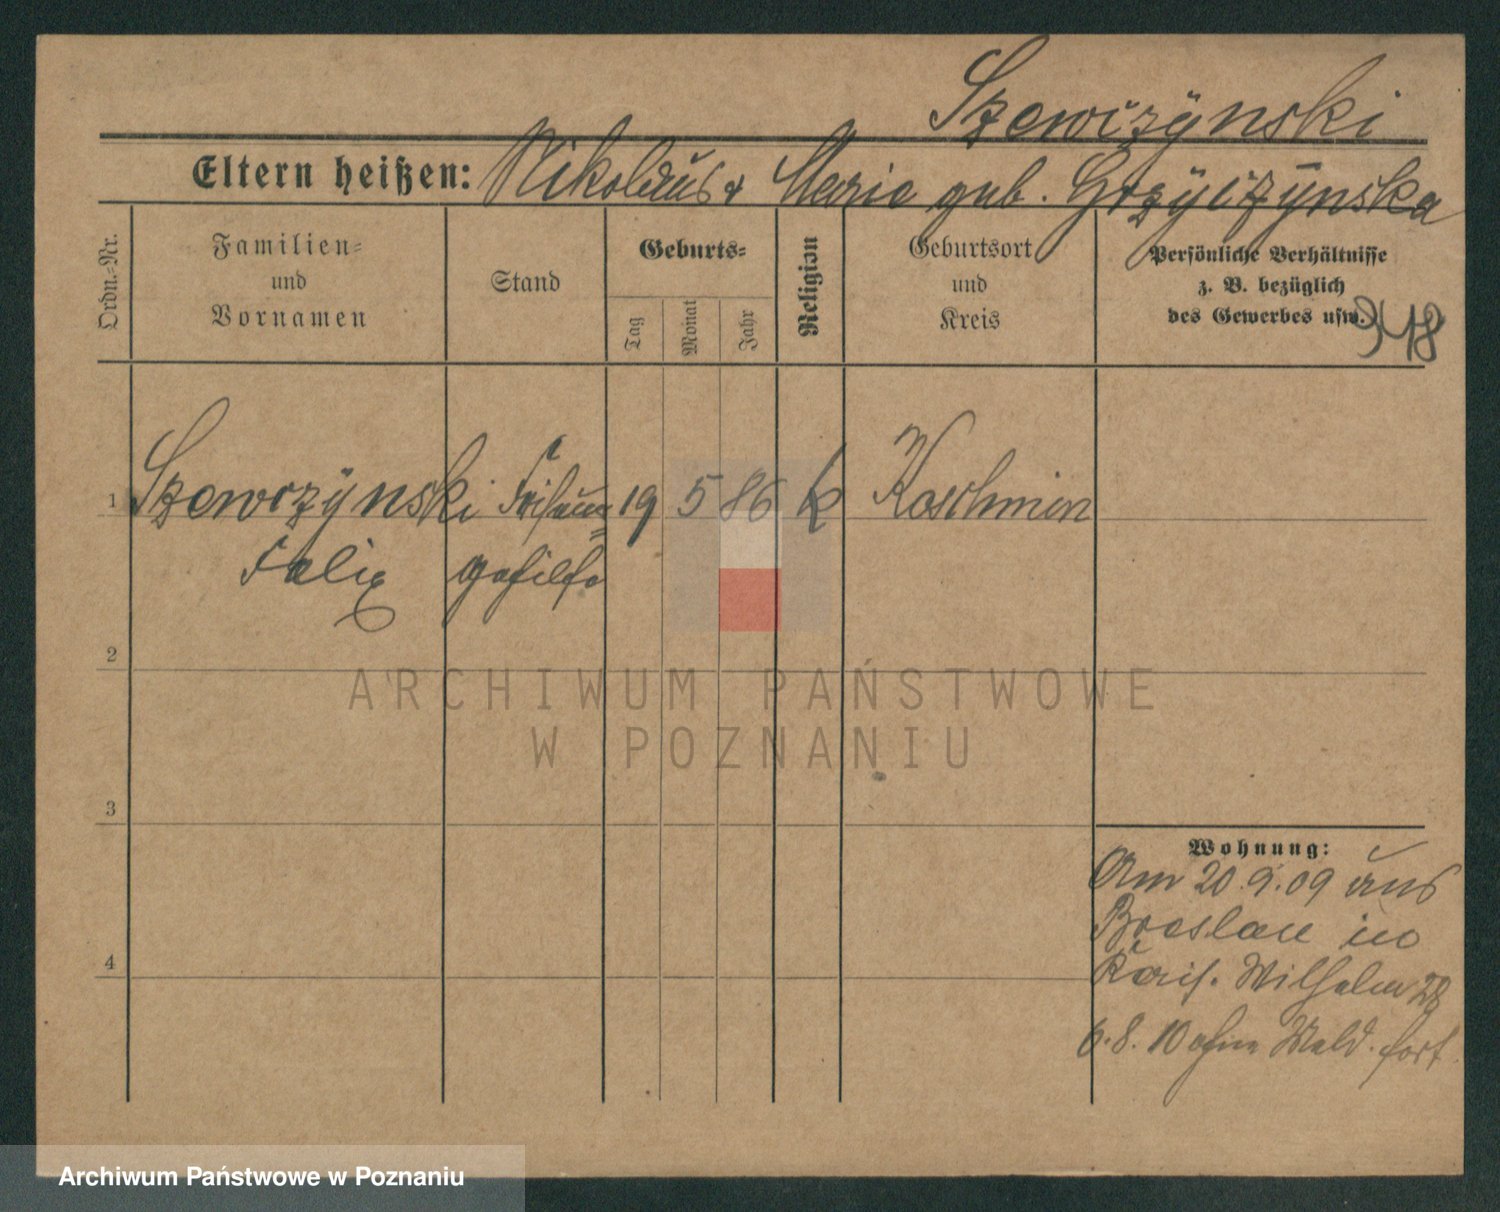 Szewczynski
Eltern heißen: Nikolaus & Marie geb. Grzyczynska
Ordn.=Nr.
Familien=
und
Vornamen
Stand
Geburts=
Tag
Monat
Jahr
Religion
Geburtsort
und
Kreis
Persönliche Verhältnisse
z. B. bezüglich
des Gewerbes usw.
948
1 Szewczynski Friseur= 19 5 86 k Koschmin
Felix gehilfe
2
3
4
Wohnung:
Am 20.9.09 aus
Breslau in
Kais. Wilhelm 28
6.8.10 ohne Meld. fort
ARCHIWUM PAŃSTWOWE
W POZNANIU
Archiwum Państwowe w Poznaniu